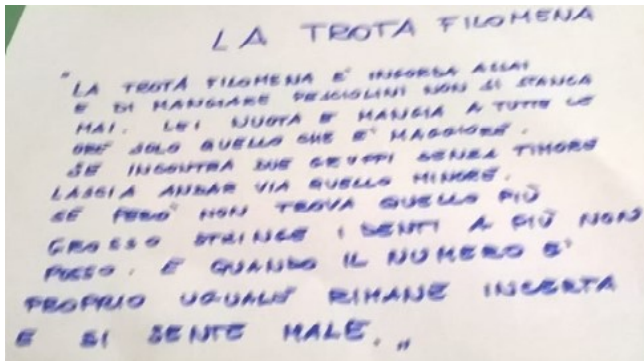 LA TROTA FILOMENA
"LA TROTA FILOMENA E' INGORDA ASSAI
E DI MANGIARE PESCIOLINI NON SI STANCA
MAI. LEI NUOTA E MANGIA A TUTTE LE
ORE SOLO QUELLO CHE E' MAGGIORE.
SE INCONTRA DUE GRUPPI SENZA TIMORE
LASCIA ANDAR VIA QUELLO MINORE.
SE PERO' NON TROVA QUELLO PIÙ
GROSSO STRINGE I DENTI A PIÙ NON
POSSO. E QUANDO IL NUMERO E'
PROPRIO UGUALE RIMANE INCERTA
E SI SENTE MALE.„